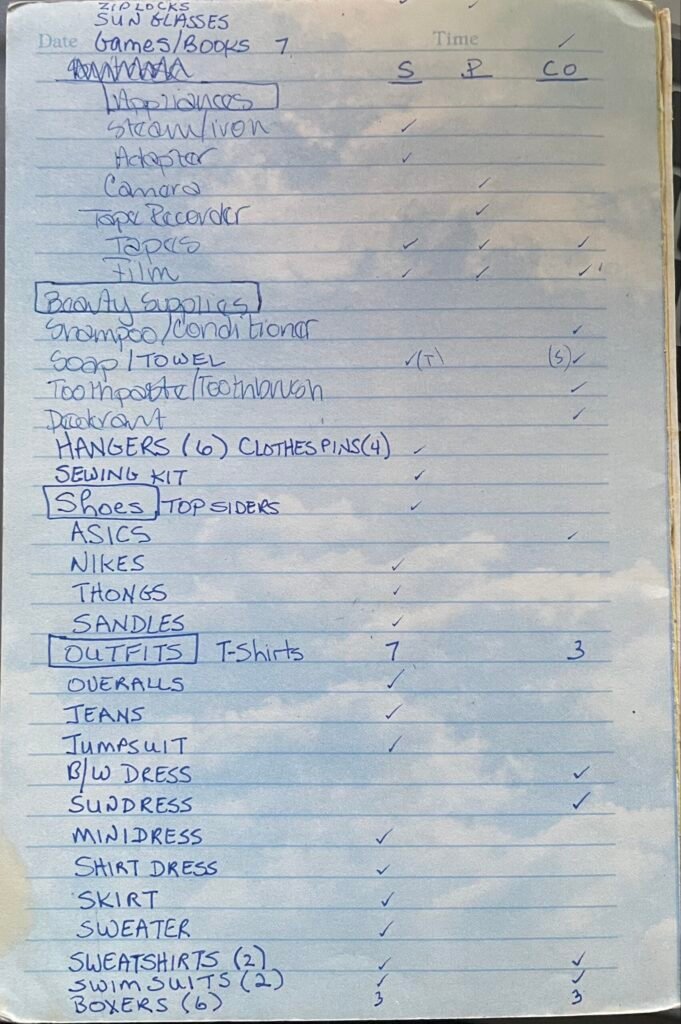 ZIP LOCKS ✓
SUN GLASSES
Date Games/Books 7 Time ✓
S P CO
Appliances
Steam/iron ✓
Adapter ✓
Camera ✓
Tape Recorder ✓
Tapes ✓ ✓ ✓
Film ✓ ✓ ✓
Beauty Supplies
Shampoo/Conditioner ✓
Soap/TOWEL ✓(T) (S)✓
Toothpaste/Toothbrush ✓
Deodorant ✓
HANGERS (6) CLOTHESPINS(4) ✓
SEWING KIT ✓
Shoes TOPSIDERS ✓
ASICS ✓
NIKES ✓
THONGS ✓
SANDLES ✓
OUTFITS T-Shirts 7 3
OVERALLS ✓
JEANS ✓
JUMPSUIT ✓
B/W DRESS ✓
SUNDRESS ✓
MINIDRESS ✓
SHIRT DRESS ✓
SKIRT ✓
SWEATER ✓
SWEATSHIRTS (2) ✓ ✓
SWIMSUITS (2) ✓ ✓
BOXERS (6) 3 3